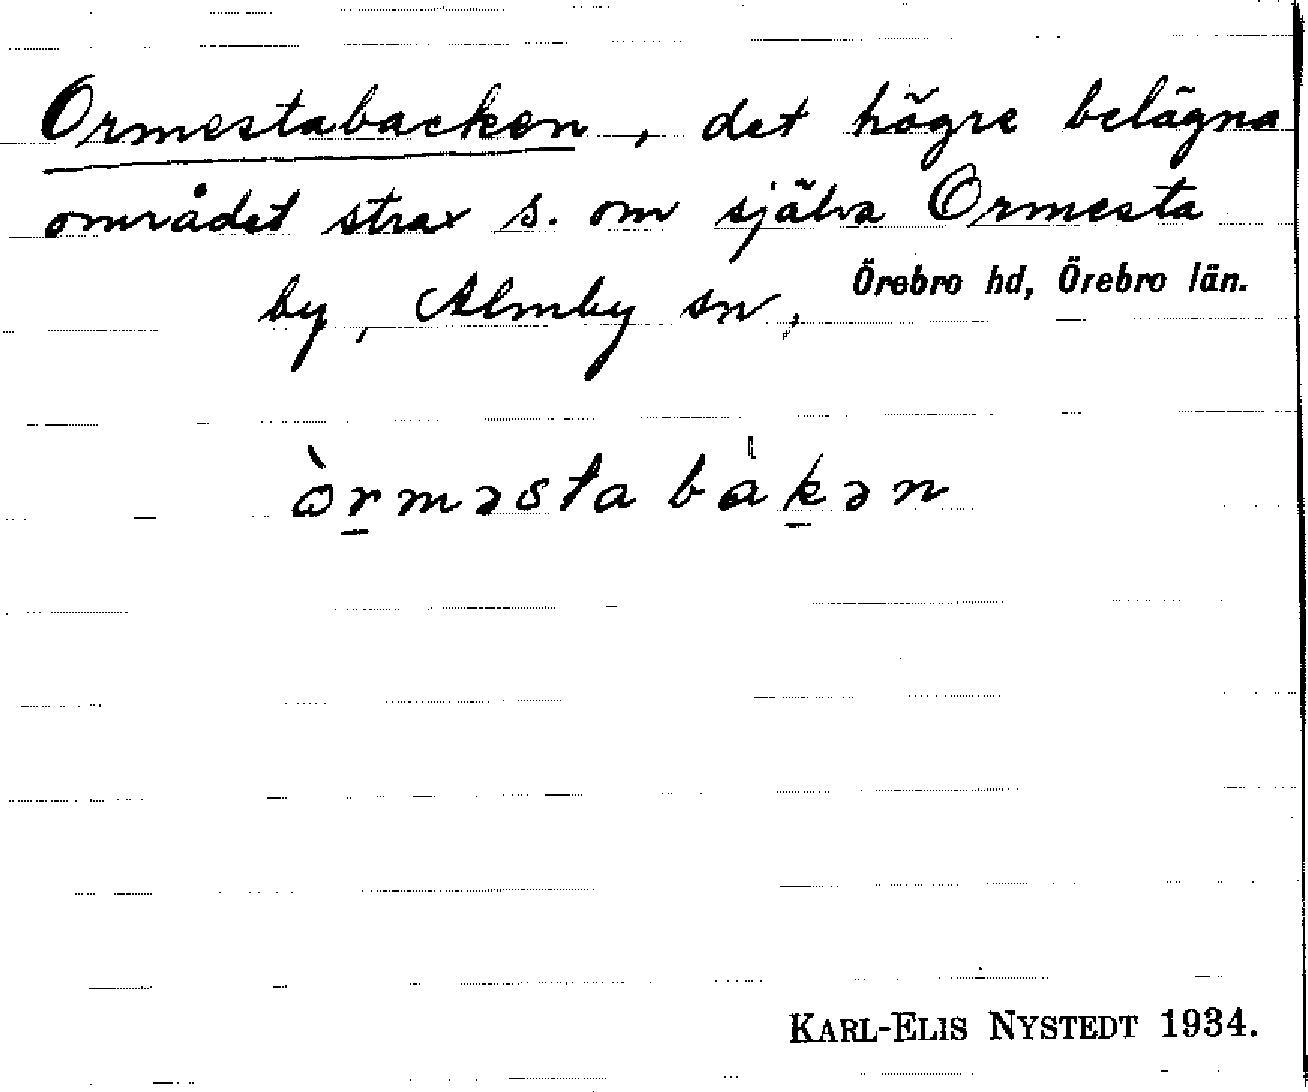 Ormestabacken, det högre belägna
området strax s. om själva Ormesta
by, Almby sn, Örebro hd, Örebro län.
òr̲məstabàk̲ən
KARL-ELIS NYSTEDT 1934.